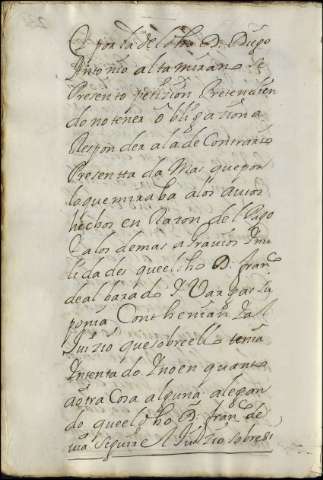 E por la del dho D. Diego
Antonio altamirano Se
Presento petision Pretendien
do no tener obligasion a
Responder a la de Contrario
Presentada Mas que por
lo que miraba a los autos
hechos en Razon del Pago
a los demas
lidades que el dho D. fran.co
de albarado y Vargas
ponia Conthenian
Juizio que sobre ello tenia
Intentado Y no en quanto
a otra Cosa alguna alegan
do que el dho D. fran.co de
via seguir el Juizio sobre